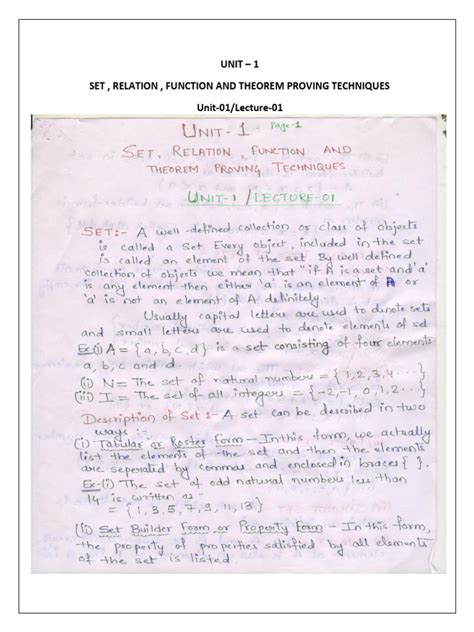 UNIT – 1
SET , RELATION , FUNCTION AND THEOREM PROVING TECHNIQUES
Unit-01/Lecture-01
UNIT- 1 Page-1
SET, RELATION, FUNCTION AND
THEOREM PROVING TECHNIQUES
UNIT-1 /LECTURE-01
SET:- A well defined collection or class of objects
is called a Set Every object, included in the set
is called an element of the set. By well defined
collection of objects we mean that "if A is a set and 'a'
is any element then either 'a' is an element of A or
'a' is not an element of A definitely.
Usually capital letters are used to denote sets
and small letters are used to denote elements of set
Ex-(i) A = {a, b, c, d} is a set consisting of four elements
a, b, c and d.
(ii) N = The set of natural numbers = {1,2,3,4...}
(iii) I = The set of all integers = {-2,-1,0,1,2...}
Description of Set :- A set can be described in two
ways :-
(i) Tabular or Roster Form - In this form, we actually
list the elements of the set and then the elements
are seperated by commas and enclosed in braces { }.
Ex-(i) The set of odd natural numbers less than
14 is written as -
= {1, 3, 5, 7, 9, 11, 13}
(ii) Set Builder Form or Property Form - In this form,
the property of properties satisfied by all elements
of the set is listed